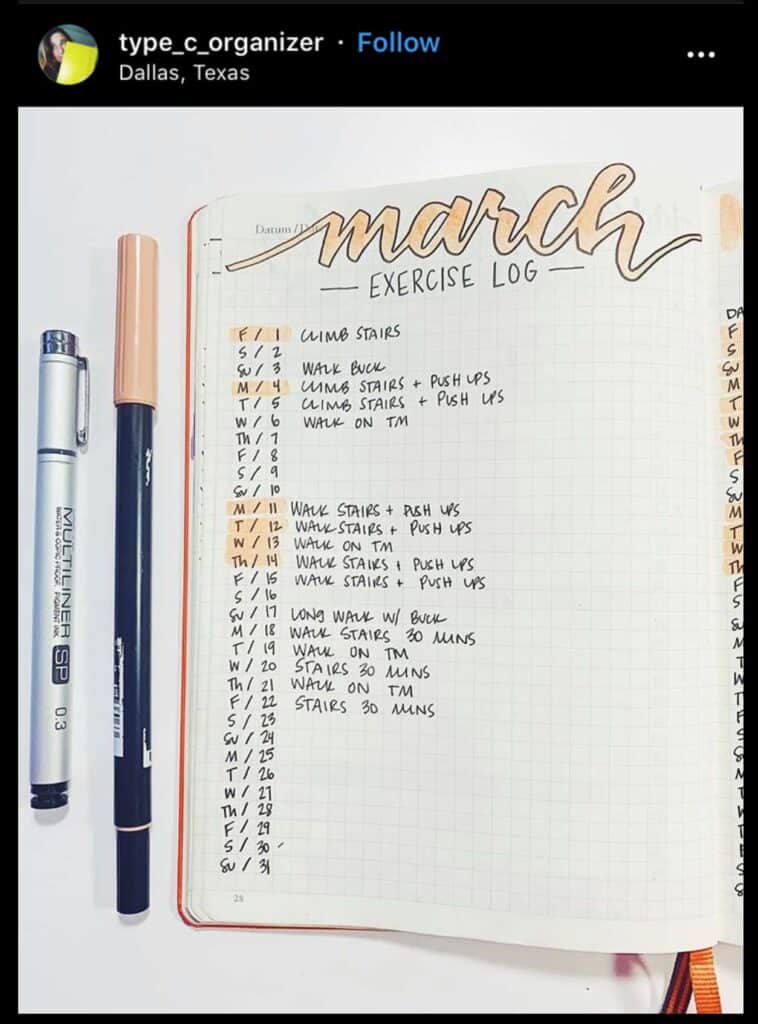 type_c_organizer · Follow
Dallas, Texas
Datum /
march
— EXERCISE LOG —
F / 1 CLIMB STAIRS
S / 2
SU / 3 WALK BUCK
M / 4 CLIMB STAIRS + PUSH UPS
T / 5 CLIMB STAIRS + PUSH UPS
W / 6 WALK ON TM
TH / 7
F / 8
S / 9
SU / 10
M / 11 WALK STAIRS + PUSH UPS
T / 12 WALK STAIRS + PUSH UPS
W / 13 WALK ON TM
TH / 14 WALK STAIRS + PUSH UPS
F / 15 WALK STAIRS + PUSH UPS
S / 16
SU / 17 LONG WALK W/ BUCK
M / 18 WALK STAIRS 30 MINS
T / 19 WALK ON TM
W / 20 STAIRS 30 MINS
TH / 21 WALK ON TM
F / 22 STAIRS 30 MINS
S / 23
SU / 24
M / 25
T / 26
W / 27
TH / 28
F / 29
S / 30
SU / 31
28
MULTILINER SP 0.3
WATER & COPIC PROOF PIGMENT INK
DA
F
S
SU
M
T
W
TH
F
S
SU
M
T
W
TH
F
S
SU
M
T
W
T
F
S
S
M
T
W
T
F
S
S